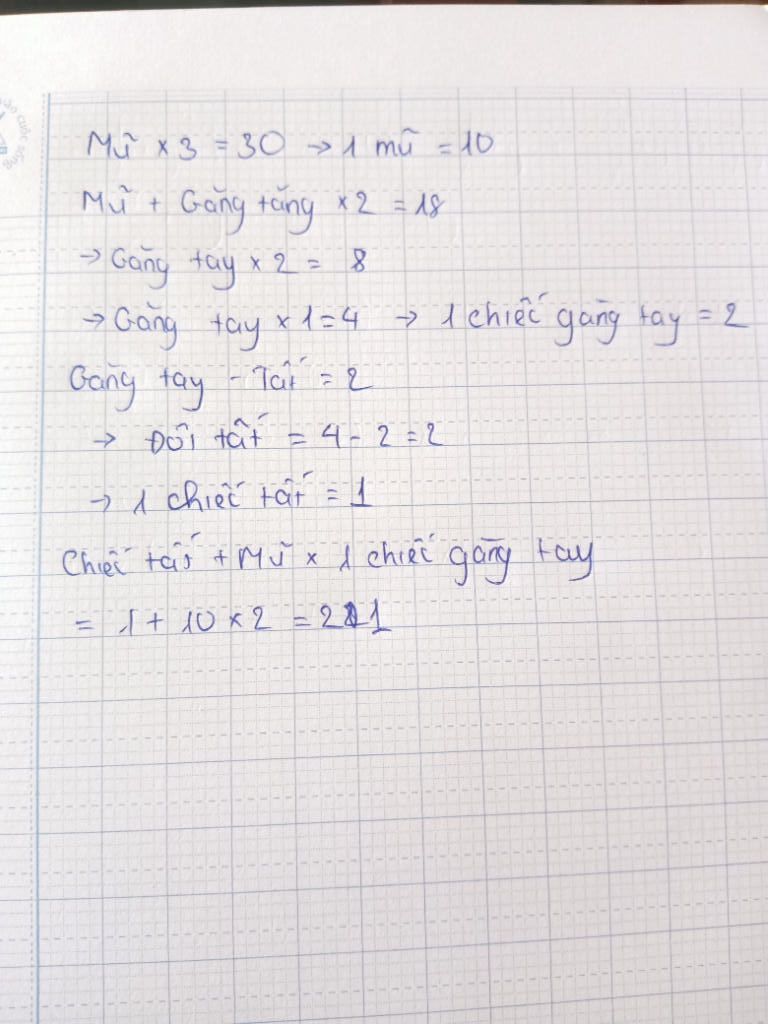 cuộc sống
Mũ × 3 = 30 → 1 mũ = 10
Mũ + Găng tăng × 2 = 18
→ Găng tay × 2 = 8
→ Găng tay × 1 = 4 → 1 chiếc găng tay = 2
Găng tay - Tất = 2
→ Đôi tất = 4 - 2 = 2
→ 1 chiếc tất = 1
Chiếc tất + Mũ × 1 chiếc găng tay
= 1 + 10 × 2 = 21